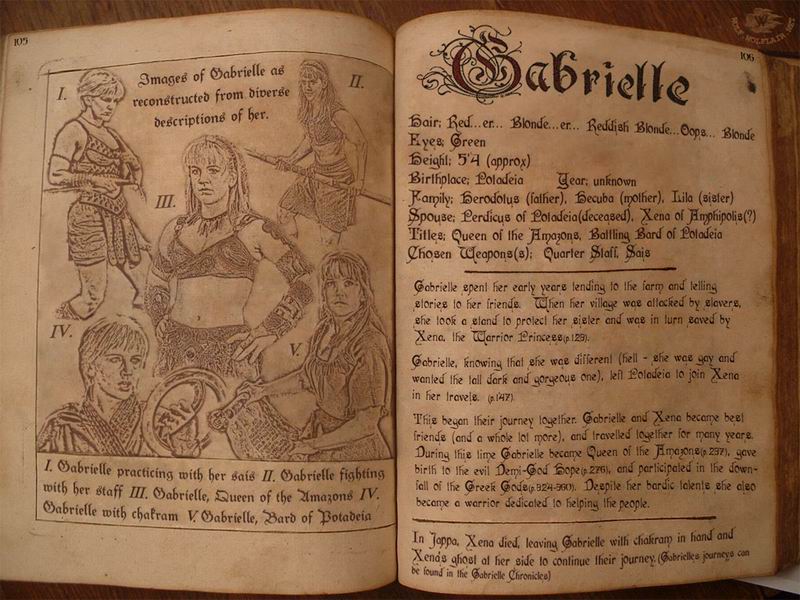 105
I.
Images of Gabrielle as
reconstructed from diverse
descriptions of her.
II.
III.
IV.
V.
I. Gabrielle practicing with her sais II. Gabrielle fighting
with her staff III. Gabrielle, Queen of the Amazons IV.
Gabrielle with chakram V. Gabrielle, Bard of Potadeia
106
Gabrielle
Hair; Red...er... Blonde...er... Reddish Blonde...Oops... Blonde
Eyes; Green
Height; 5'4 (approx)
Birthplace; Potadeia Year; unknown
Family; Herodotus (father), Hecuba (mother), Lila (sister)
Spouse; Perdicus of Potadeia(deceased), Xena of Amphipolis(?)
Titles; Queen of the Amazons, Battling Bard of Potadeia
Chosen Weapons(s); Quarter Staff, Sais
Gabrielle spent her early years tending to the farm and telling
stories to her friends. When her village was attacked by slavers,
she took a stand to protect her sister and was in turn saved by
Xena, the Warrior Princess(p.129).
Gabrielle, knowing that she was different (hell - she was gay and
wanted the tall dark and gorgeous one), left Potadeia to join Xena
in her travels. (p.147).
This began their journey together. Gabrielle and Xena became best
friends (and a whole lot more), and travelled together for many years.
During this time Gabrielle became Queen of the Amazons(p.237), gave
birth to the evil Demi-God Hope(p.276), and participated in the down-
fall of the Greek Gods(p.324-360). Despite her bardic talents she also
became a warrior dedicated to helping the people.
In Jappa, Xena died, leaving Gabrielle with chakram in hand and
Xena's ghost at her side to continue their journey. (Gabrielle's journeys can
be found in the Gabrielle Chronicles)